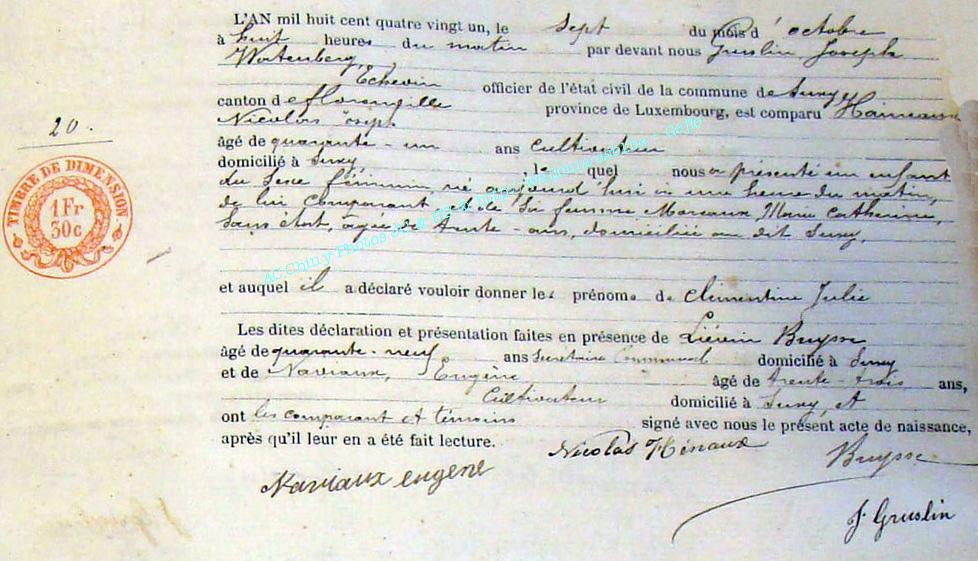 L'AN mil huit cent quatre vingt un, le sept du mois d'octobre
à huit heures du matin par devant nous Gruslin Joseph
Wartenberg, Echevin officier de l'état civil de la commune de Suxy
canton de florenville province de Luxembourg, est comparu
Nicolas Joseph
20.
âgé de quarante-un ans cultivateur
domicilié à Suxy lequel nous a présenté un enfant
du sexe féminin, né aujourd'hui à une heure du matin,
de lui comparant et de sa femme Moreaux Marie Catherine,
sans état, agée de trente-ans, domiciliée au dit Suxy,
TIMBRE DE DIMENSION
1 Fr
30c
et auquel il a déclaré vouloir donner les prénoms de Clémentine Julie
Les dites déclaration et présentation faites en présence de Liévin Buysse
âgé de quarante-neuf ans Secrétaire Communal domicilié à Suxy
et de Naviaux, Eugène âgé de trente-trois ans,
Cultivateur domicilié à Suxy, et
ont les comparant et témoins signé avec nous le présent acte de naissance,
après qu'il leur en a été fait lecture.
Nicolas Hénaux
Naviaux eugene
Buysse
J. Gruslin
AC Chiny Photos